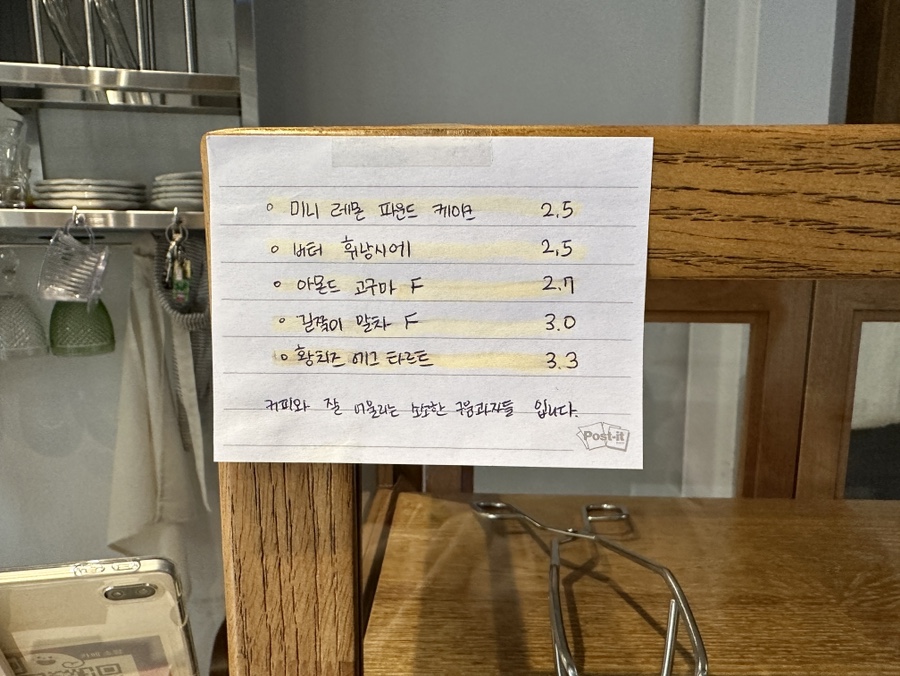 미니 레몬 파운드 케이크 2.5
버터 휘낭시에 2.5
아몬드 고구마 F 2.7
길쭉이 말차 F 3.0
황치즈 에그 타르트 3.3
커피와 잘 어울리는 소소한 구움과자들 입니다.
Post-it